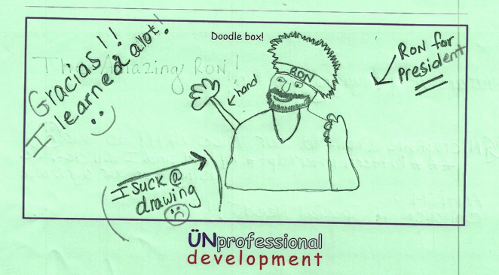 Doodle box!
The Amazing RON!
Gracias!!
I learned alot!
RON for
President
RON
hand
I SUCK @
drawing
ÜNprofessional
development